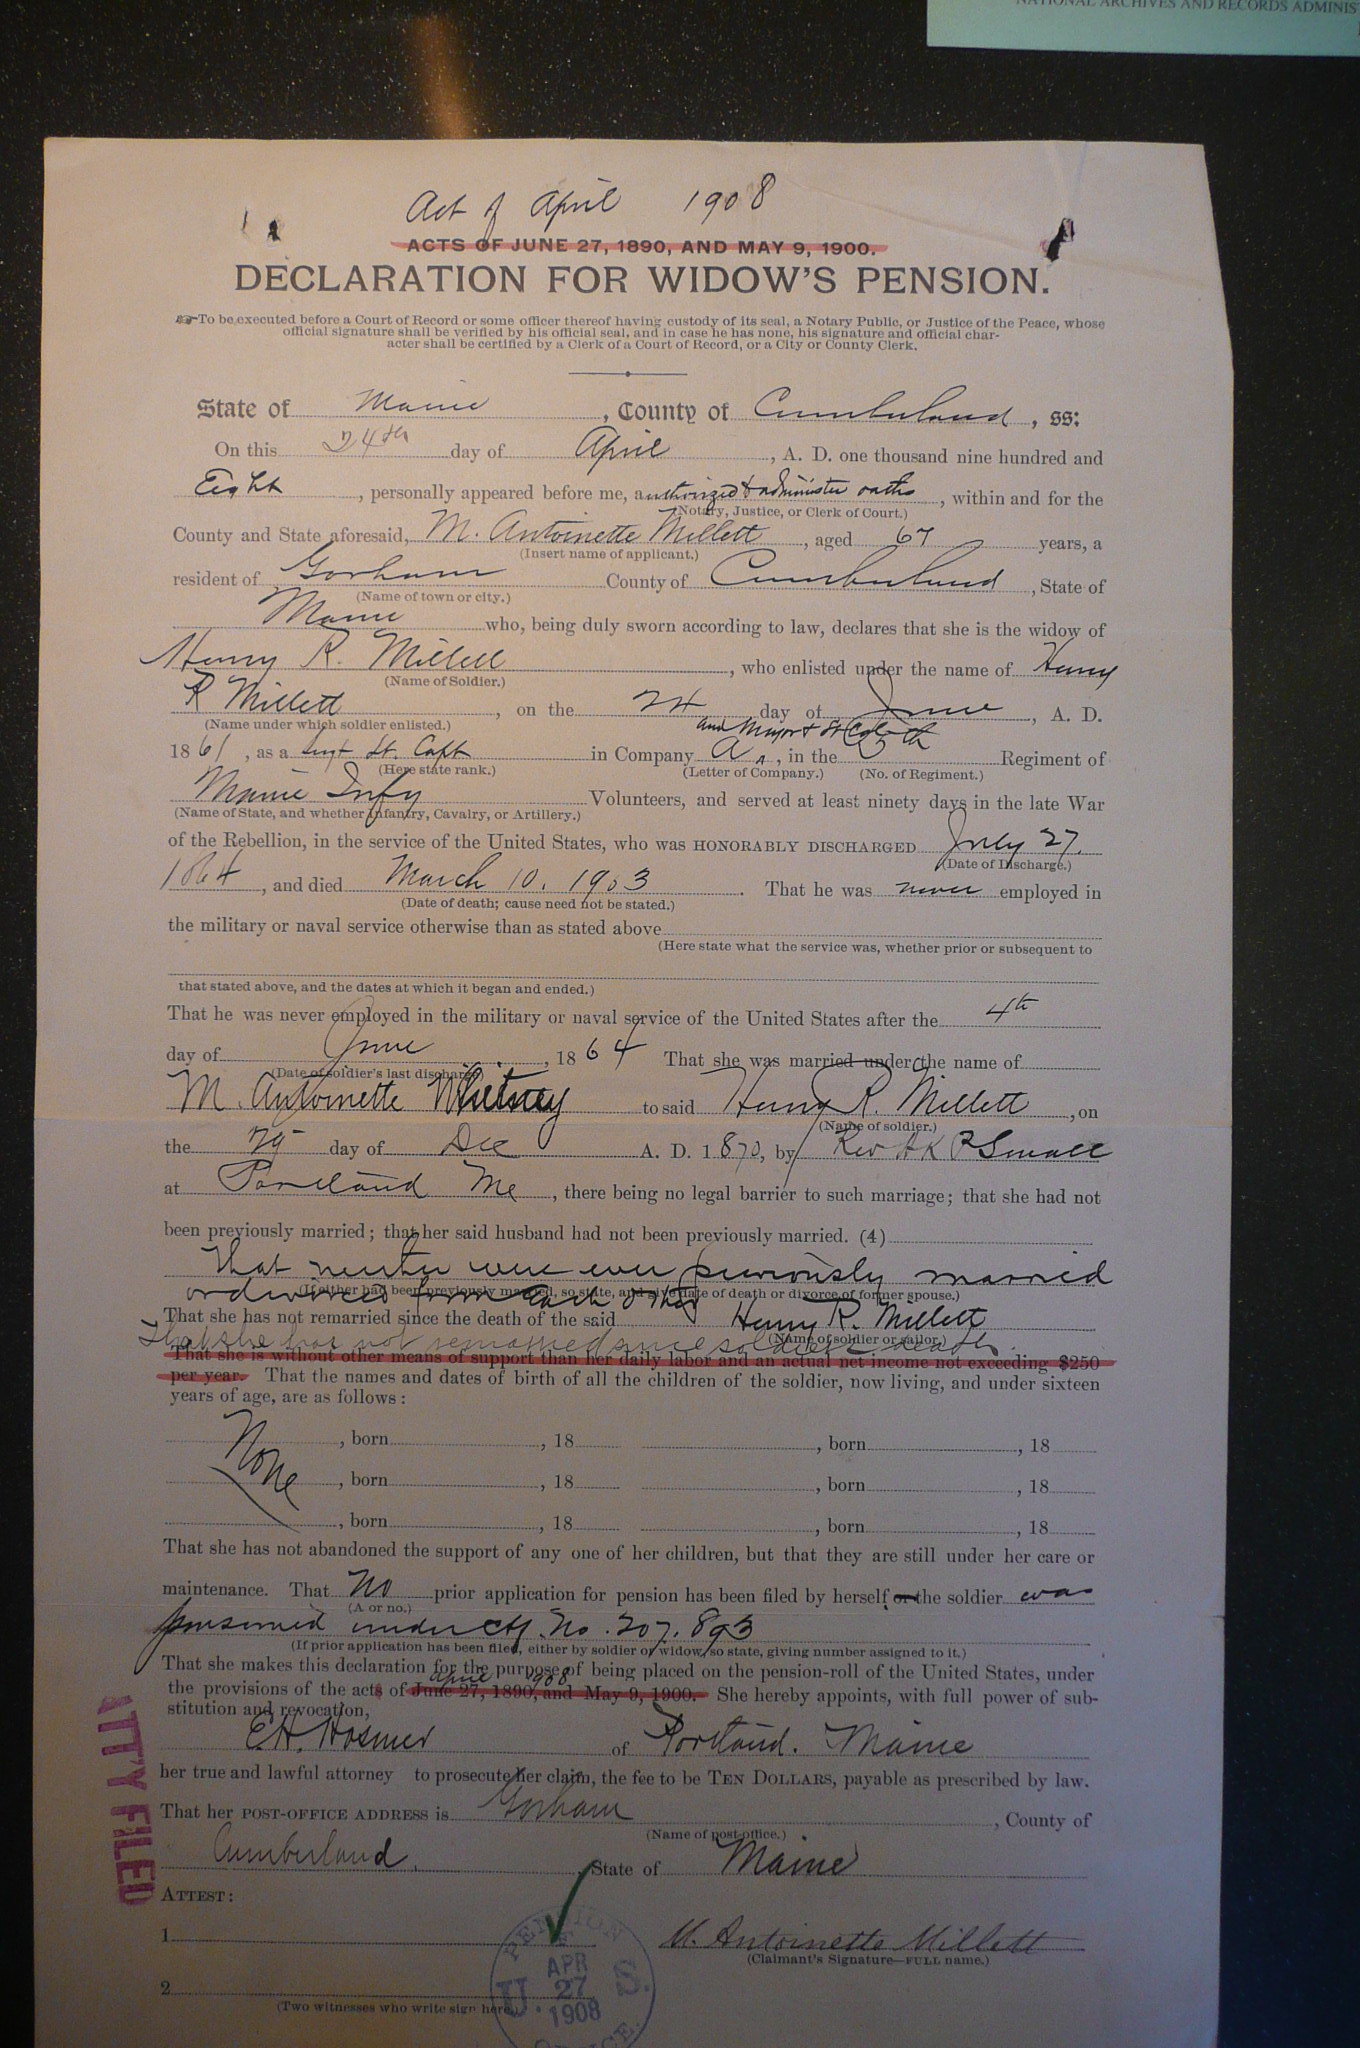 NATIONAL ARCHIVES AND RECORDS ADMINIS
Act of April 1908
ACTS OF JUNE 27, 1890, AND MAY 9, 1900.
DECLARATION FOR WIDOW'S PENSION.
☞To be executed before a Court of Record or some officer thereof having custody of its seal, a Notary Public, or Justice of the Peace, whose
official signature shall be verified by his official seal, and in case he has none, his signature and official char-
acter shall be certified by a Clerk of a Court of Record, or a City or County Clerk.
State of Maine, County of Cumberland, ss:
On this 24th day of April, A. D. one thousand nine hundred and
Eight, personally appeared before me, authorized to administer oaths, within and for the
(Notary, Justice, or Clerk of Court.)
County and State aforesaid, M. Antoinette Millett, aged 67 years, a
(Insert name of applicant.)
resident of Gorham County of Cumberland, State of
(Name of town or city.)
Maine who, being duly sworn according to law, declares that she is the widow of
Henry R. Millett, who enlisted under the name of Henry
(Name of Soldier.)
R Millett, on the 24 day of June, A. D.
(Name under which soldier enlisted.)
and Major & Lt Col
1861, as a Capt in Company A, in the 5th Regiment of
(Here state rank.) (Letter of Company.) (No. of Regiment.)
Maine Infy Volunteers, and served at least ninety days in the late War
(Name of State, and whether Infantry, Cavalry, or Artillery.)
of the Rebellion, in the service of the United States, who was HONORABLY DISCHARGED July 27.
(Date of Discharge.)
1864, and died March 10. 1903. That he was never employed in
(Date of death; cause need not be stated.)
the military or naval service otherwise than as stated above
(Here state what the service was, whether prior or subsequent to
that stated above, and the dates at which it began and ended.)
That he was never employed in the military or naval service of the United States after the 4th
day of June, 1864 That she was married under the name of
(Date of soldier's last discharge.)
M. Antoinette Whitney to said Henry R. Millett, on
(Name of soldier.)
the day of Dec A. D. 1870, by Rev A K P Small
at Portland Me, there being no legal barrier to such marriage; that she had not
been previously married; that her said husband had not been previously married. (4)
That neither were ever previously married
(If either had been previously married, so state, and give date of death or divorce of former spouse.)
or divorced from each other
That she has not remarried since the death of the said Henry R. Millett
(Name of soldier or sailor.)
That she has not remarried since soldier's death.
That she is without other means of support than her daily labor and an actual net income not exceeding $250
per year. That the names and dates of birth of all the children of the soldier, now living, and under sixteen
years of age, are as follows:
None
, born , 18 , born , 18
, born , 18 , born , 18
, born , 18 , born , 18
That she has not abandoned the support of any one of her children, but that they are still under her care or
maintenance. That No prior application for pension has been filed by herself or the soldier was
(A or no.)
pensioned under ctf. No. 207.893
(If prior application has been filed, either by soldier or widow, so state, giving number assigned to it.)
That she makes this declaration for the purpose of being placed on the pension-roll of the United States, under
April 1908
the provisions of the acts of June 27, 1890, and May 9, 1900. She hereby appoints, with full power of sub-
stitution and revocation,
E.H. Hosmer of Portland. Maine
her true and lawful attorney to prosecute her claim, the fee to be TEN DOLLARS, payable as prescribed by law.
That her POST-OFFICE ADDRESS is Gorham, County of
(Name of post-office.)
Cumberland, State of Maine
ATTEST:
1
M. Antoinette Millett
(Claimant's Signature—FULL name.)
2
(Two witnesses who write sign here.)
ATTY FILED
U. S. PENSION OFFICE.
APR
27
1908